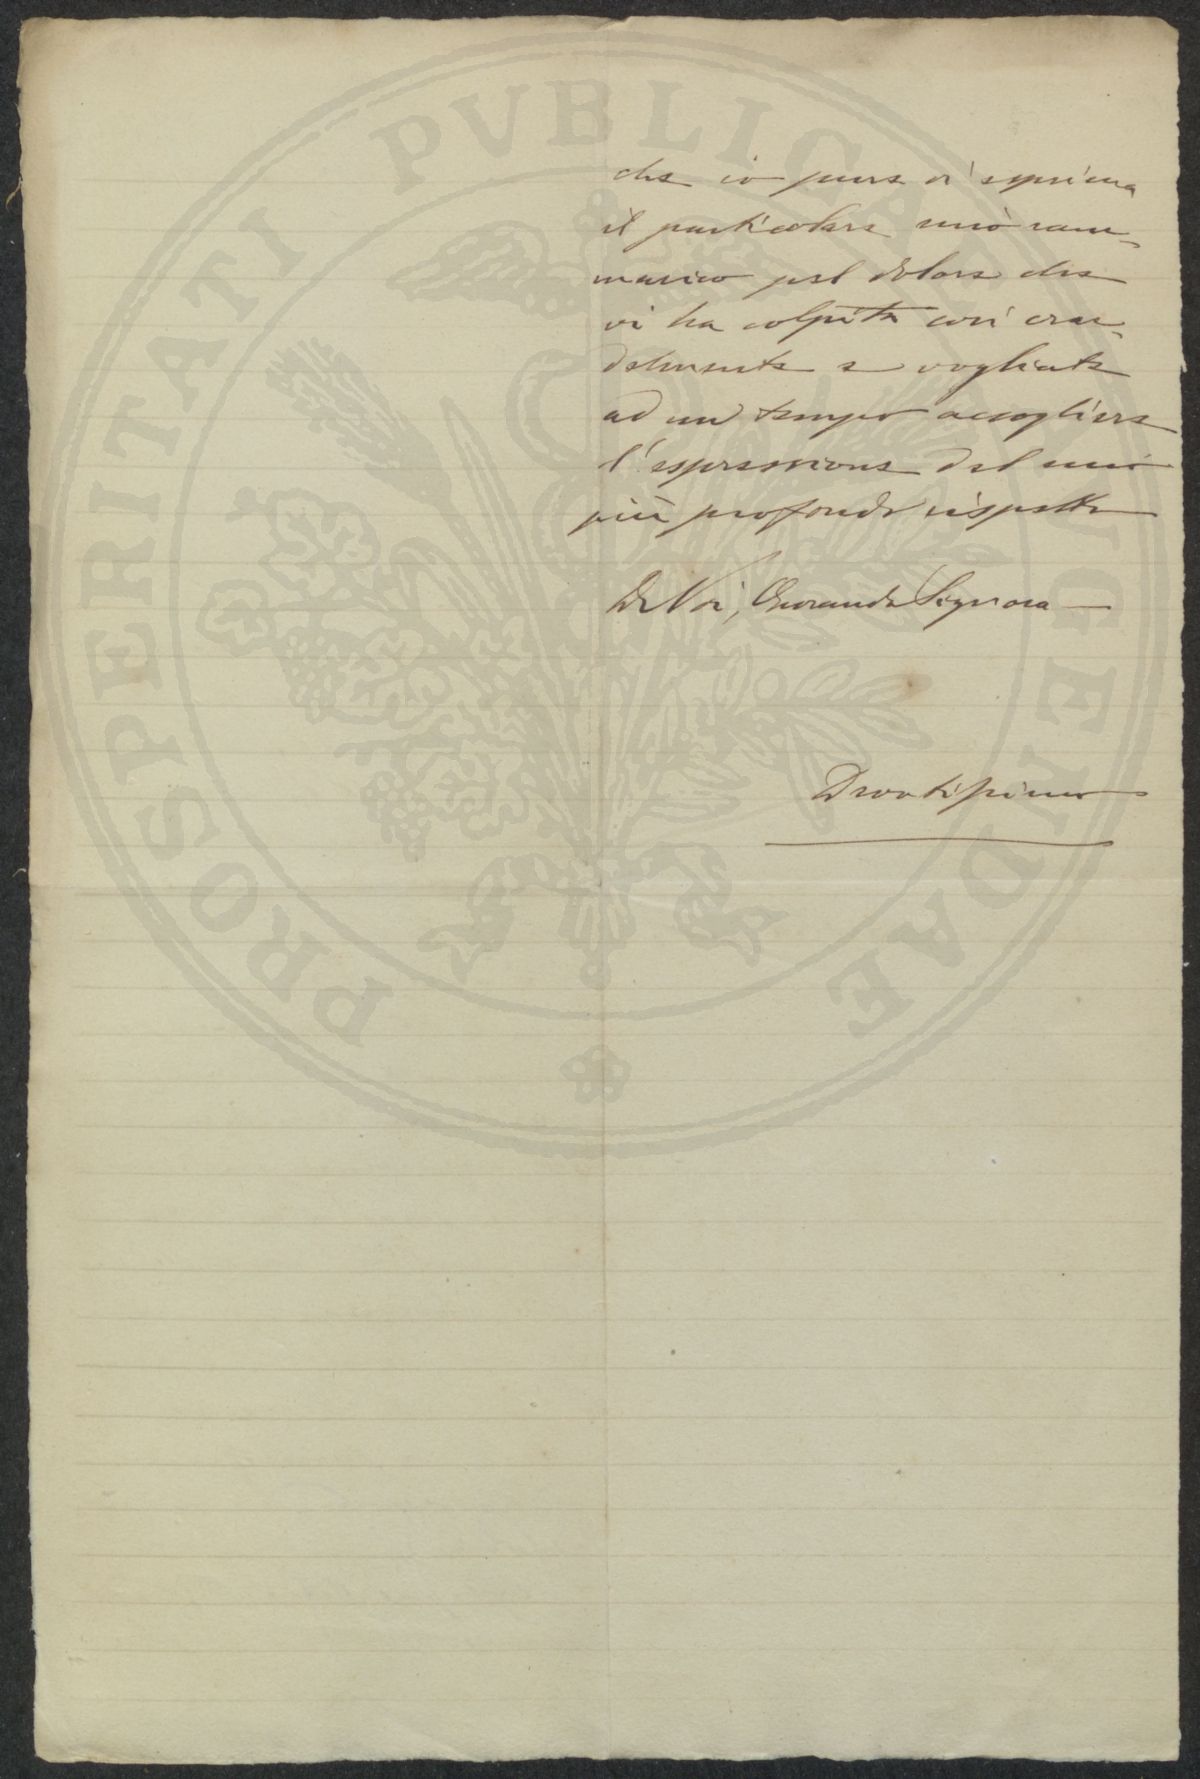 che io pure vi esprima
il particolare mio ram-
marico pel dolore che
vi ha colpita così cru-
delmente e vogliate
ad un tempo accogliere
l'espressione del mio
più profondo rispetto
Di Voi, Onoranda Signora
Devotissimo
PROSPERITATI PVBLICAE AVGENDAE